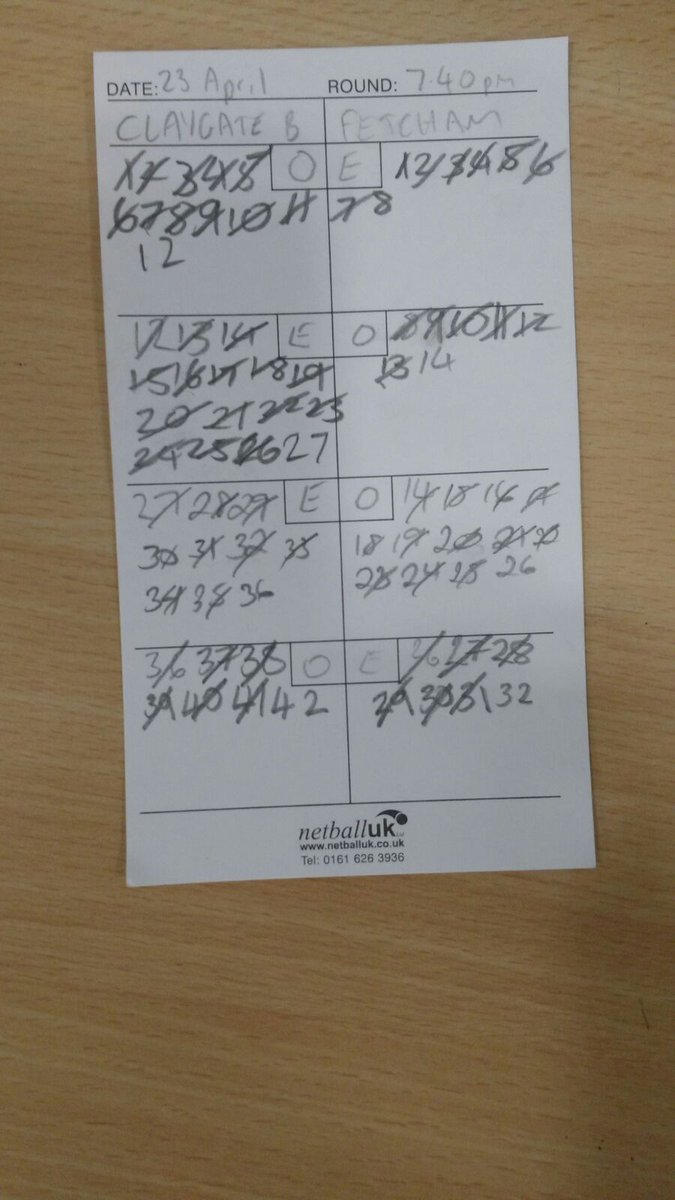 DATE: 23 April ROUND: 7.40pm
CLAYGATE B FETCHAM
1 2 3 4 5 O E 1 2 3 4 5 6
6 7 8 9 10 11 7 8
12
12 13 14 E O 8 9 10 11 12
15 16 17 18 19 13 14
20 21 22 23
24 25 26 27
27 28 29 E O 14 15 16 17
30 31 32 33 18 19 20 21 22
34 35 36 23 24 25 26
36 37 38 O E 26 27 28
39 40 41 42 29 30 31 32
netballuk Ltd
www.netballuk.co.uk
Tel: 0161 626 3936